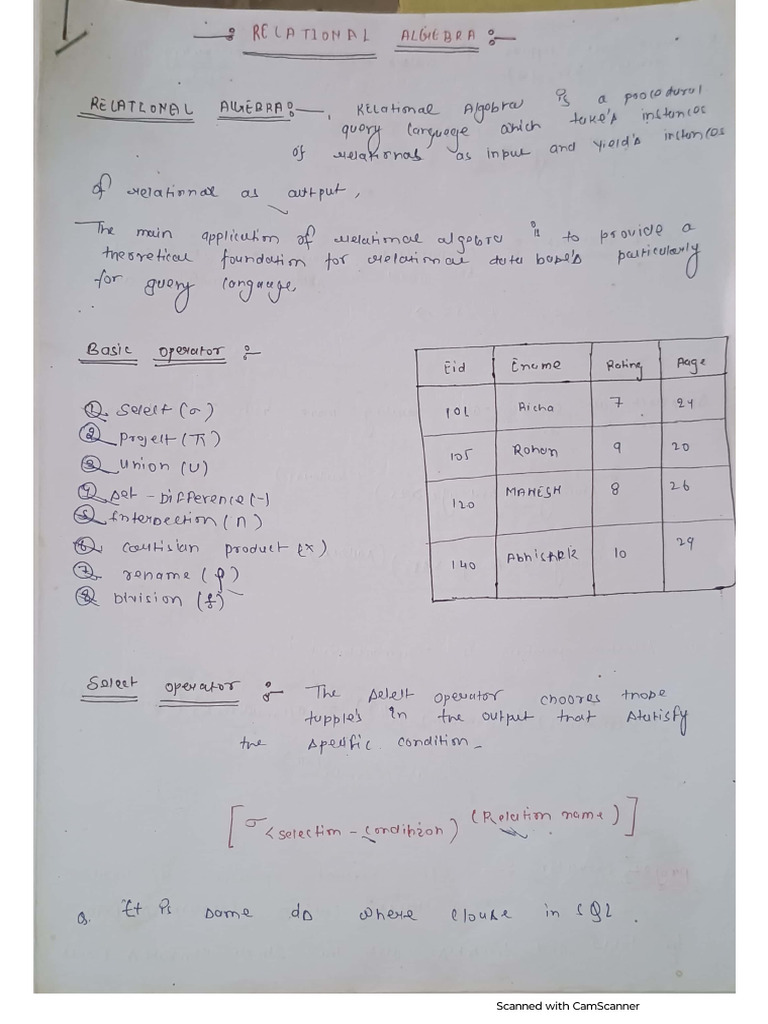 RELATIONAL ALGEBRA :-
RELATIONAL ALGEBRA :- Relational Algebra is a procedural
query language which take's instances
of relational as input and yield's instences
of relational as output,
The main application of relational algebra is to provide a
theoretical foundation for relational data base's particularly
for query langauge,
Basic operator :-
① Select (σ)
② Project (π)
③ Union (∪)
④ set - Difference (-)
⑤ Intersection (∩)
⑥ cartisian product (x)
⑦ rename (ρ)
⑧ Division (÷)
Eid Ename Rating Aage
101 Richa 7 24
105 Rohan 9 20
120 MAHESH 8 26
140 Abhisark 10 29
Select operator :- The select operator chooses those
tupple's in the output that statisfy
the specific condition -
[σ <selection - condition) (Relation name)]
Q. It is same as where clouse in SQL .
Scanned with CamScanner